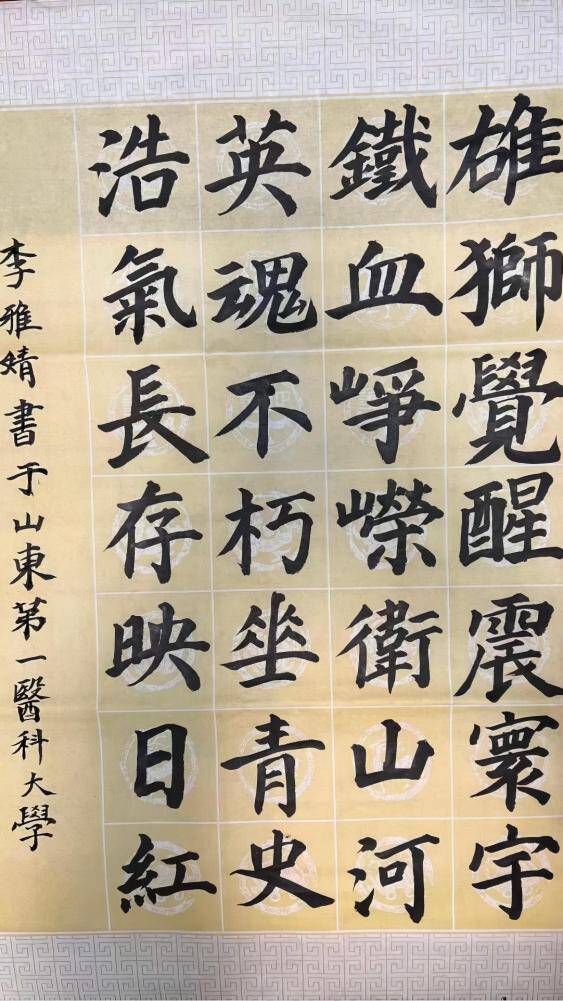 雄獅覺醒震寰宇
鐵血崢嶸衛山河
英魂不朽坐青史
浩氣長存映日紅
李雅婧書于山東第一醫科大學